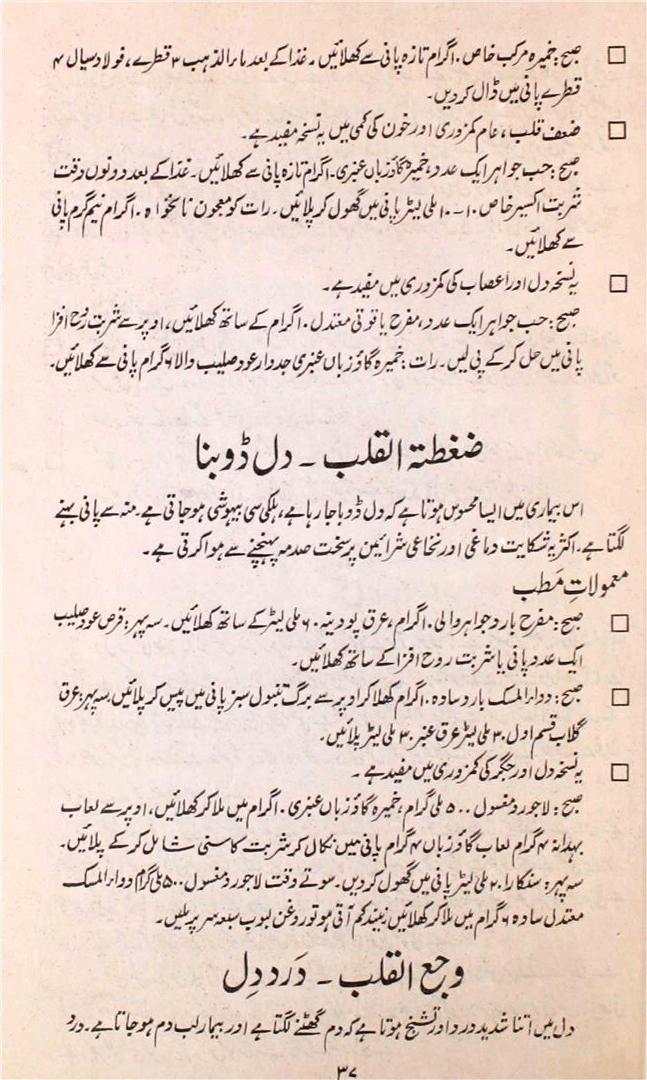 □ صبح: خمیرہ مرکب خاص ۱۰گرام تازہ پانی سے کھلائیں۔ غذا کے بعد ماء الذہب ۳ قطرے، فولاد سیال ۴
قطرے پانی میں ڈال کر دیں۔
□ ضعف قلب، عام کمزوری اور خون کی کمی میں یہ نسخہ مفید ہے۔
صبح: حب جواہر ایک عدد، خمیرہ گاؤزباں عنبری ۱۰گرام تازہ پانی سے کھلائیں۔ غذا کے بعد دونوں وقت
شربت اکسیر خاص ۱۰-۱۰ ملی لیٹر پانی میں گھول کر پلائیں۔ رات کو معجون نانخواہ ۱۰گرام نیم گرم پانی
سے کھلائیں۔
□ یہ نسخہ دل اور اعصاب کی کمزوری میں مفید ہے۔
صبح: حب جواہر ایک عدد، مفرح یاقوتی معتدل ۱۰گرام کے ساتھ کھلائیں، اوپر سے شربت روح افزا
پانی میں حل کر کے پی لیں۔ رات: خمیرہ گاؤزباں عنبری جدوار عود صلیب والا ۶ گرام پانی سے کھلائیں۔
ضغطتہ القلب ۔ دل ڈوبنا
اس بیماری میں ایسا محسوس ہوتا ہے کہ دل ڈوبا جا رہا ہے، ہلکی سی بیہوشی ہو جاتی ہے۔ منہ سے پانی بہنے
لگتا ہے۔ اکثر یہ شکایت دماغی اور نخاعی شرائین پر سخت صدمہ پہنچنے سے ہوا کرتی ہے۔
معمولاتِ مَطب
□ صبح: مفرح بارد جواہر والی ۱۰گرام، عرق پودینہ ۶۰ ملی لیٹر کے ساتھ کھلائیں۔ سہ پہر: قرص عود صلیب
ایک عدد پانی یا شربت روح افزا کے ساتھ کھلائیں۔
□ صبح: دواء المسک بارد سادہ ۱۰گرام کھلا کر اوپر سے برگ تنبول سبز پانی میں پیس کر پلائیں۔ سہ پہر: عرق
گلاب قسم اول ۳۰ ملی لیٹر عرق عنبر ۳۰ ملی لیٹر پلائیں۔
□ یہ نسخہ دل اور جگر کی کمزوری میں مفید ہے۔
صبح: لاجورد مغسول ۵۰۰ ملی گرام، خمیرہ گاؤزباں عنبری ۱۰گرام میں ملا کر کھلائیں، اوپر سے لعاب
بہدانہ ۴ گرام لعاب گاؤزباں ۴ گرام پانی میں نکال کر شربت کاسنی شامل کر کے پلائیں۔
سہ پہر: سنکارا ۲۰ ملی لیٹر پانی میں گھول کر دیں۔ سوتے وقت لاجورد مغسول ۵۰۰ ملی گرام دواء المسک
معتدل سادہ ۶ گرام میں ملا کر کھلائیں نیند کم آتی ہو تو روغن لبوب سبعہ سر پر ملیں۔
وجع القلب ۔ دَردِ دِل
دل میں اتنا شدید درد اور تشنج ہوتا ہے کہ دم گھٹنے لگتا ہے اور بیمار لب دم ہو جاتا ہے۔ درد
۳۷